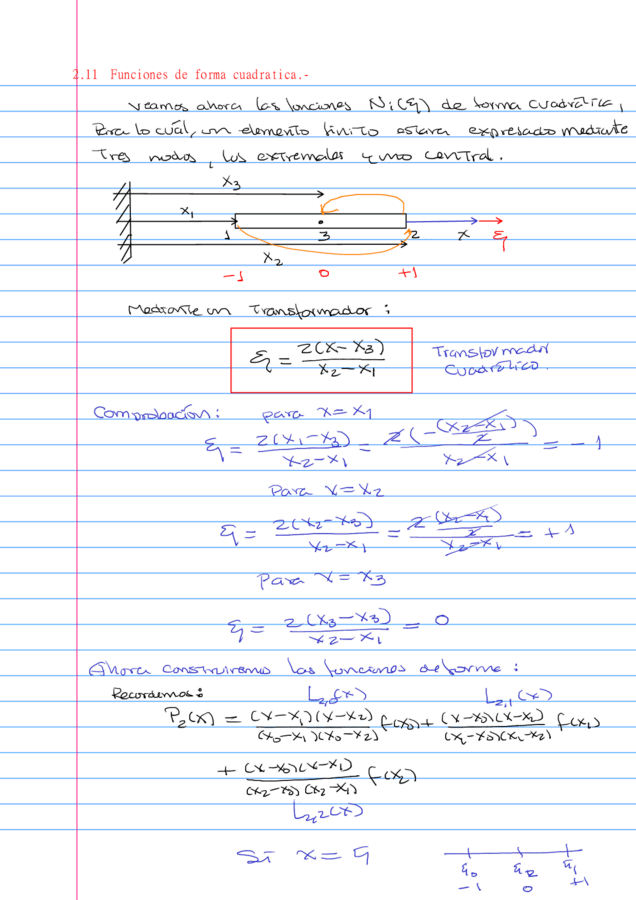 2.11 Funciones de forma cuadratica.-
veamos ahora las funciones Ni(ξ) de forma cuadrática,
Para lo cuál, un elemento finito estara expresado mediante
Tres nodos, los extremales y uno central.
x3
x1
1 3 2 x ξ
x2
-1 0 +1
Mediante un Transformador :
ξ = 2(x-x3) / (x2-x1) Transformador
Cuadrático.
Comprobación: para x=x1
ξ = 2(x1-x3) / (x2-x1) = 2(-(x2-x1)/2) / (x2-x1) = -1
Para x=x2
ξ = 2(x2-x3) / (x2-x1) = 2 (x2-x1)/2 / (x2-x1) = +1
Para x=x3
ξ = 2(x3-x3) / (x2-x1) = 0
Ahora construiremos las funciones de forma :
Recordemos: L2,0(x) L2,1(x)
P2(x) = (x-x1)(x-x2) / (x0-x1)(x0-x2) f(x0) + (x-x0)(x-x2) / (x1-x0)(x1-x2) f(x1)
+ (x-x0)(x-x1) / (x2-x0)(x2-x1) f(x2)
L2,2(x)
Si x=ξ
ξ0 ξ2 ξ1
-1 0 +1